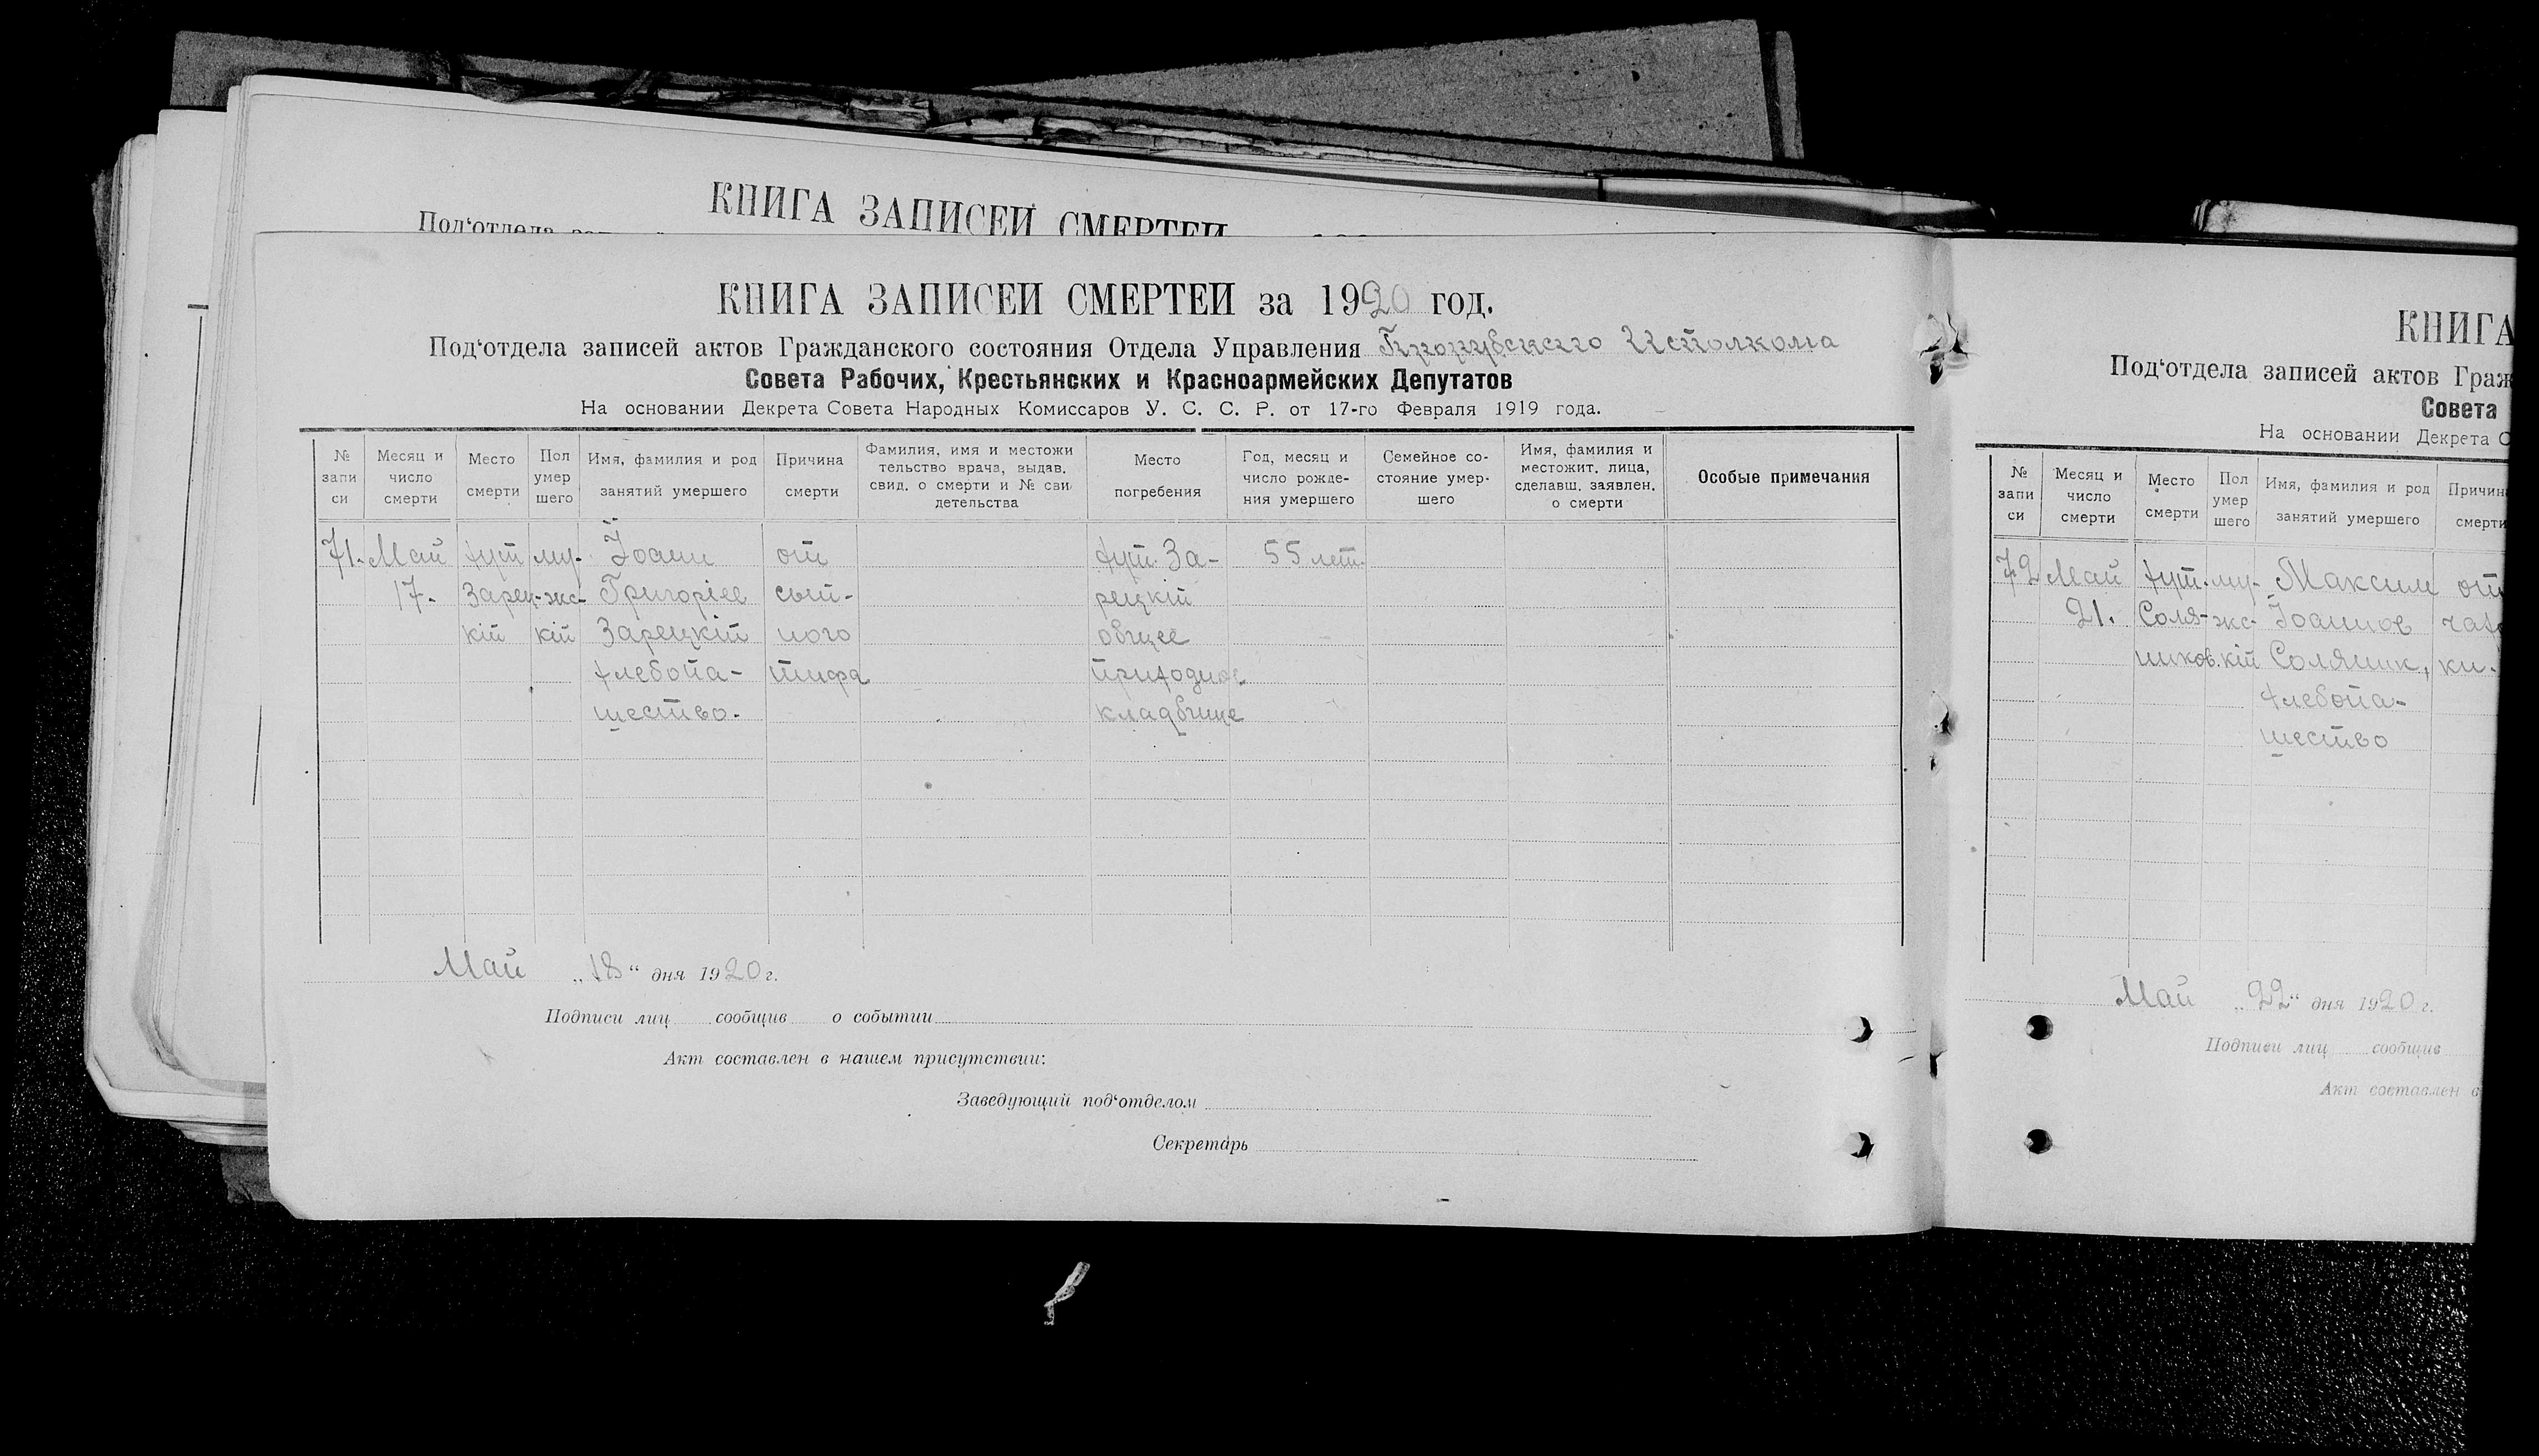 КНИГА ЗАПИСЕЙ СМЕРТЕЙ
Под‘отдела
КНИГА ЗАПИСЕЙ СМЕРТЕЙ за 1920 год.
Под‘отдела записей актов Гражданского состояния Отдела Управления Исполкома
Совета Рабочих, Крестьянских и Красноармейских Депутатов
На основании Декрета Совета Народных Комиссаров У. С. С. Р. от 17-го Февраля 1919 года.
№ запи си
Месяц и число смерти
Место смерти
Пол умер шего
Имя, фамилия и род занятий умершего
Причина смерти
Фамилия, имя и местожи тельство врача, выдав. свид. о смерти и № сви детельства
Место погребения
Год, месяц и число рожде- ния умершего
Семейное со- стояние умер- шего
Имя, фамилия и местожит. лица, сделавш. заявлен. о смерти
Особые примечания
71. Май хут му- Іоанн от хут. За- 55 лет.
17. Зарец- жс- Григоріев сып- рецкій
кій кій Зарецкій ного общее
хлебопа- тифа приходное
шество. кладбище
Май „18“ дня 1920 г.
Подписи лиц сообщив о событии
Акт составлен в нашем присутствии:
Заведующий под‘отделом
Секретарь
КНИГА
Под‘отдела записей актов Граж
Совета
На основании Декрета С
№ запи си
Месяц и число смерти
Место смерти
Пол умер шего
Имя, фамилия и род занятий умершего
Причин смерти
72 Май хут. му- Максим от
21. Соля- жс- Іоаннов чахо
ников. кій Соляник, ки.
хлебопа-
шество
Май „22“ дня 1920 г.
Подписи лиц сообщив
Акт составлен в